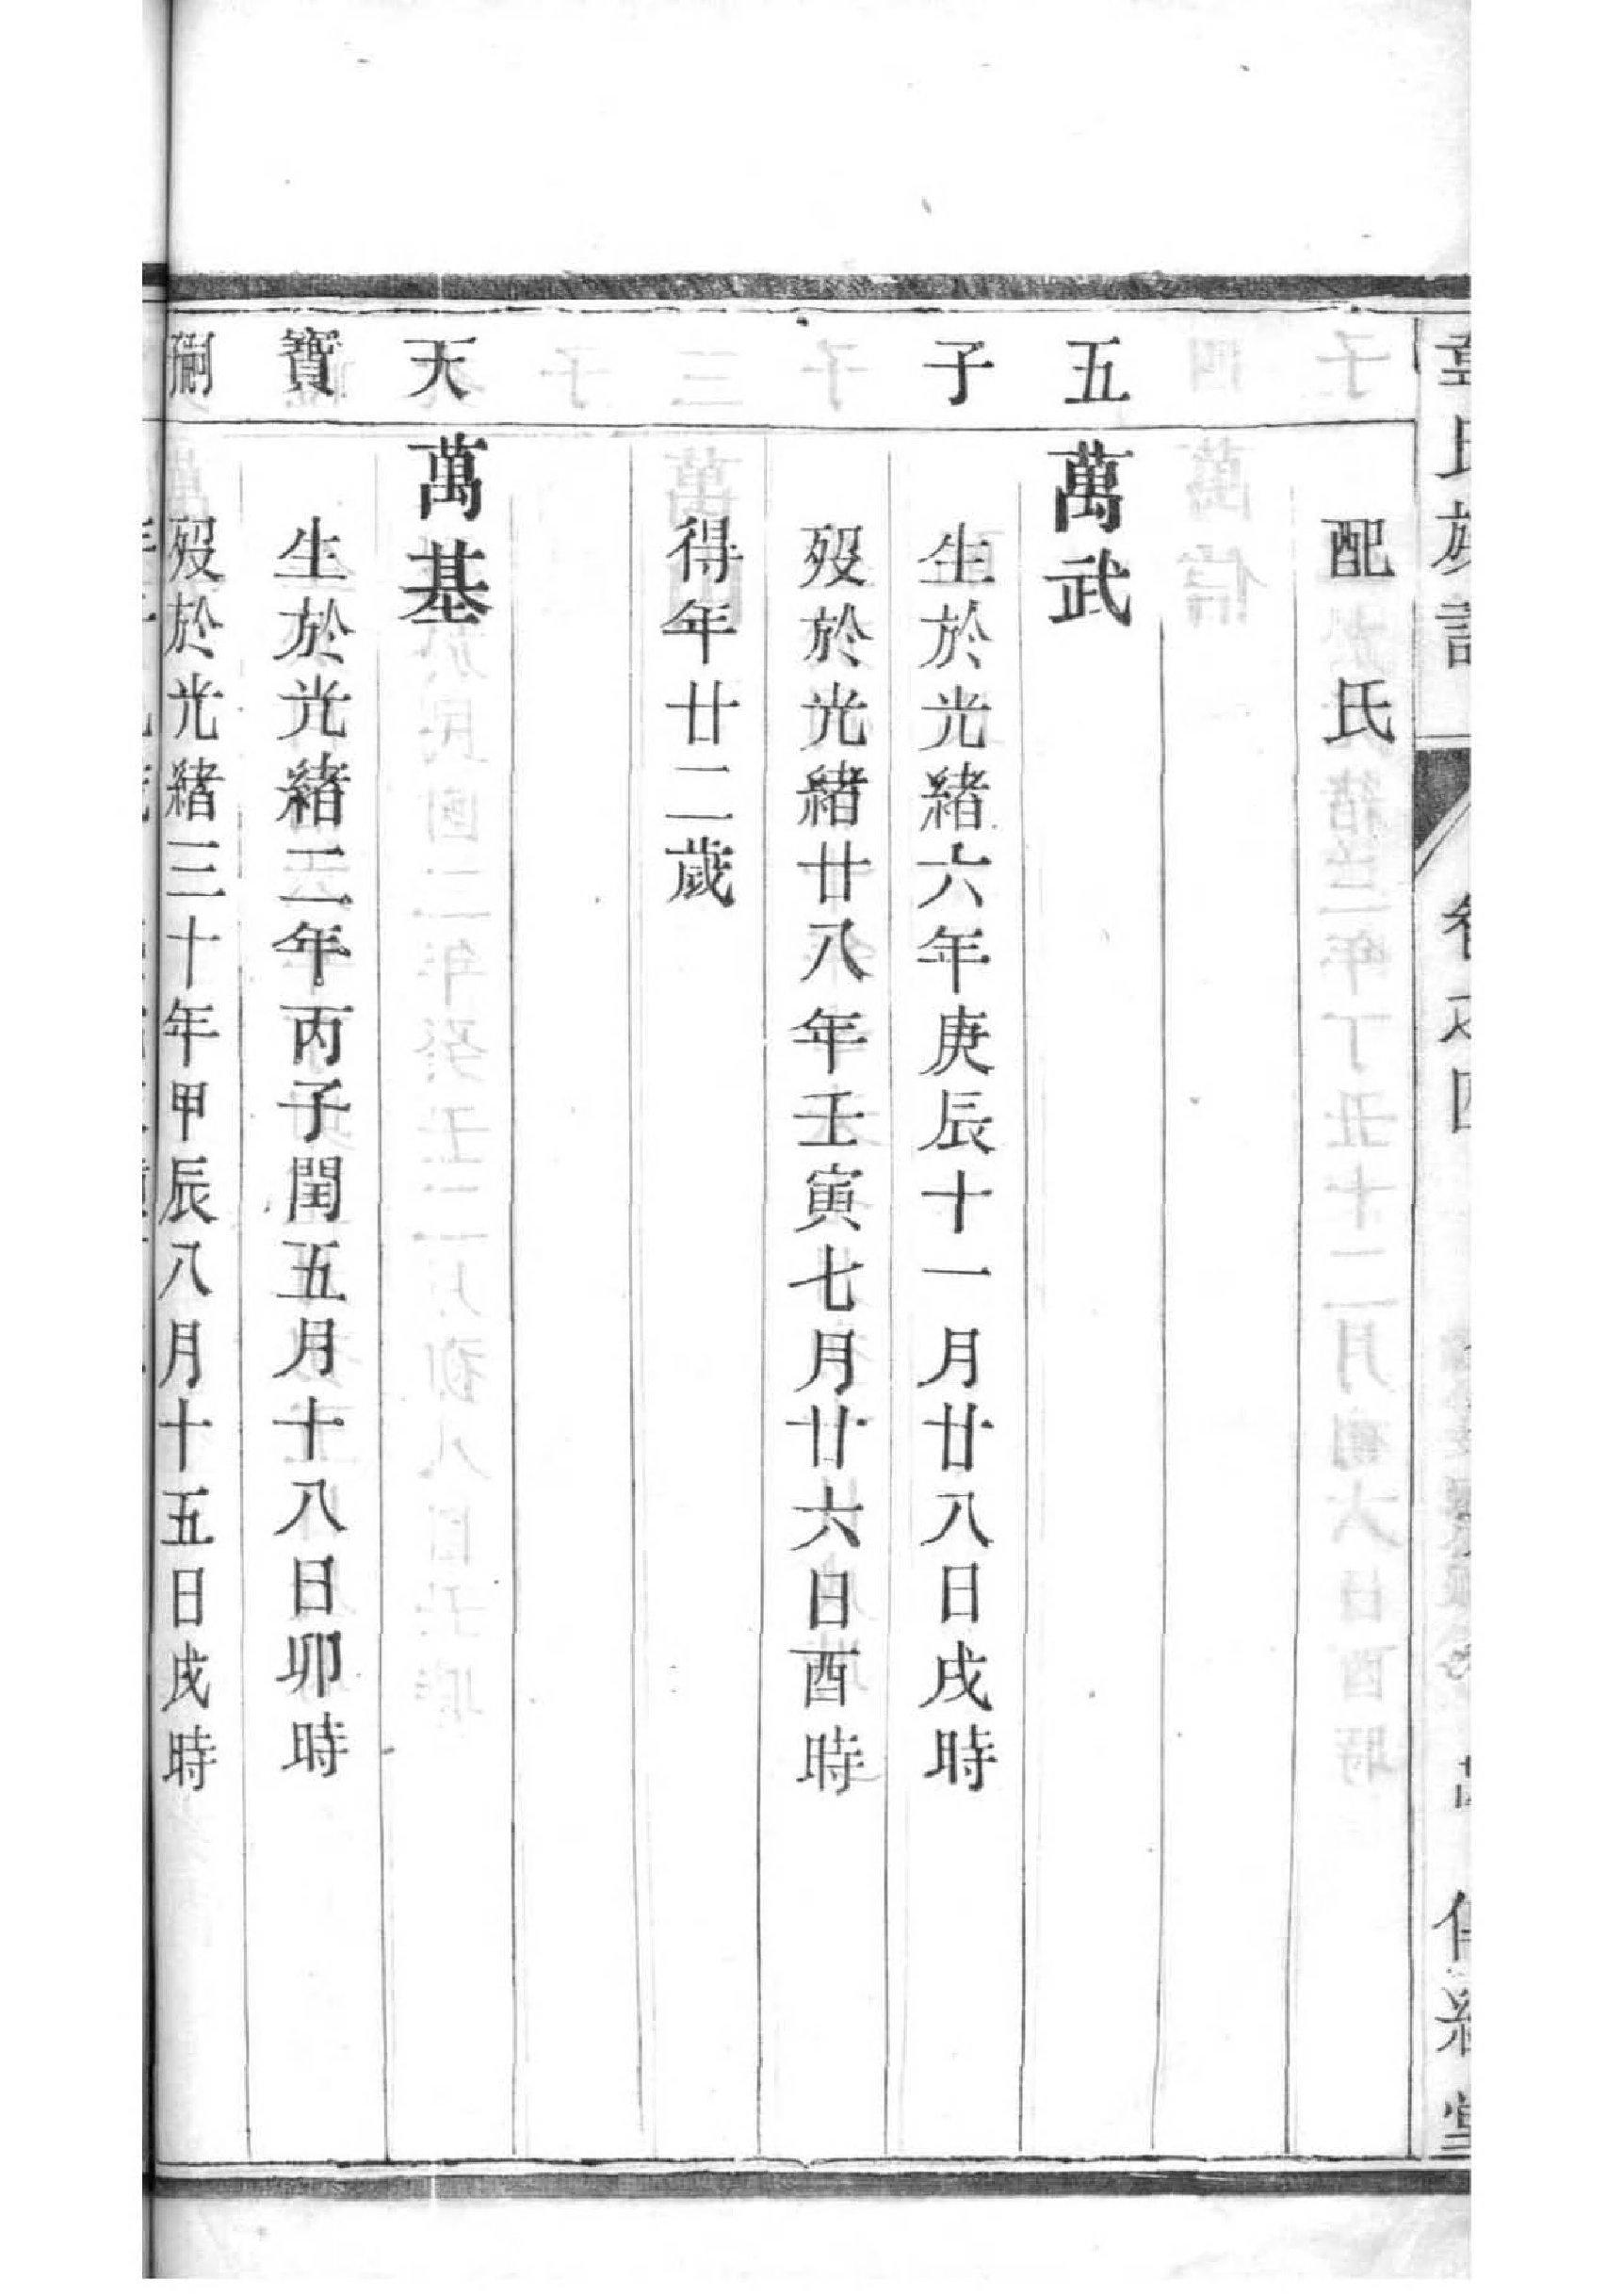 氏族譜 卷之四
配 氏
五子 萬武
生於光緒六年庚辰十一月廿八日戌時
歿於光緒廿八年壬寅七月廿六日酉時
得年廿二歲
天 萬基
寶 生於光緒二年丙子閏五月十八日卯時
歿於光緒三十年甲辰八月十五日戌時